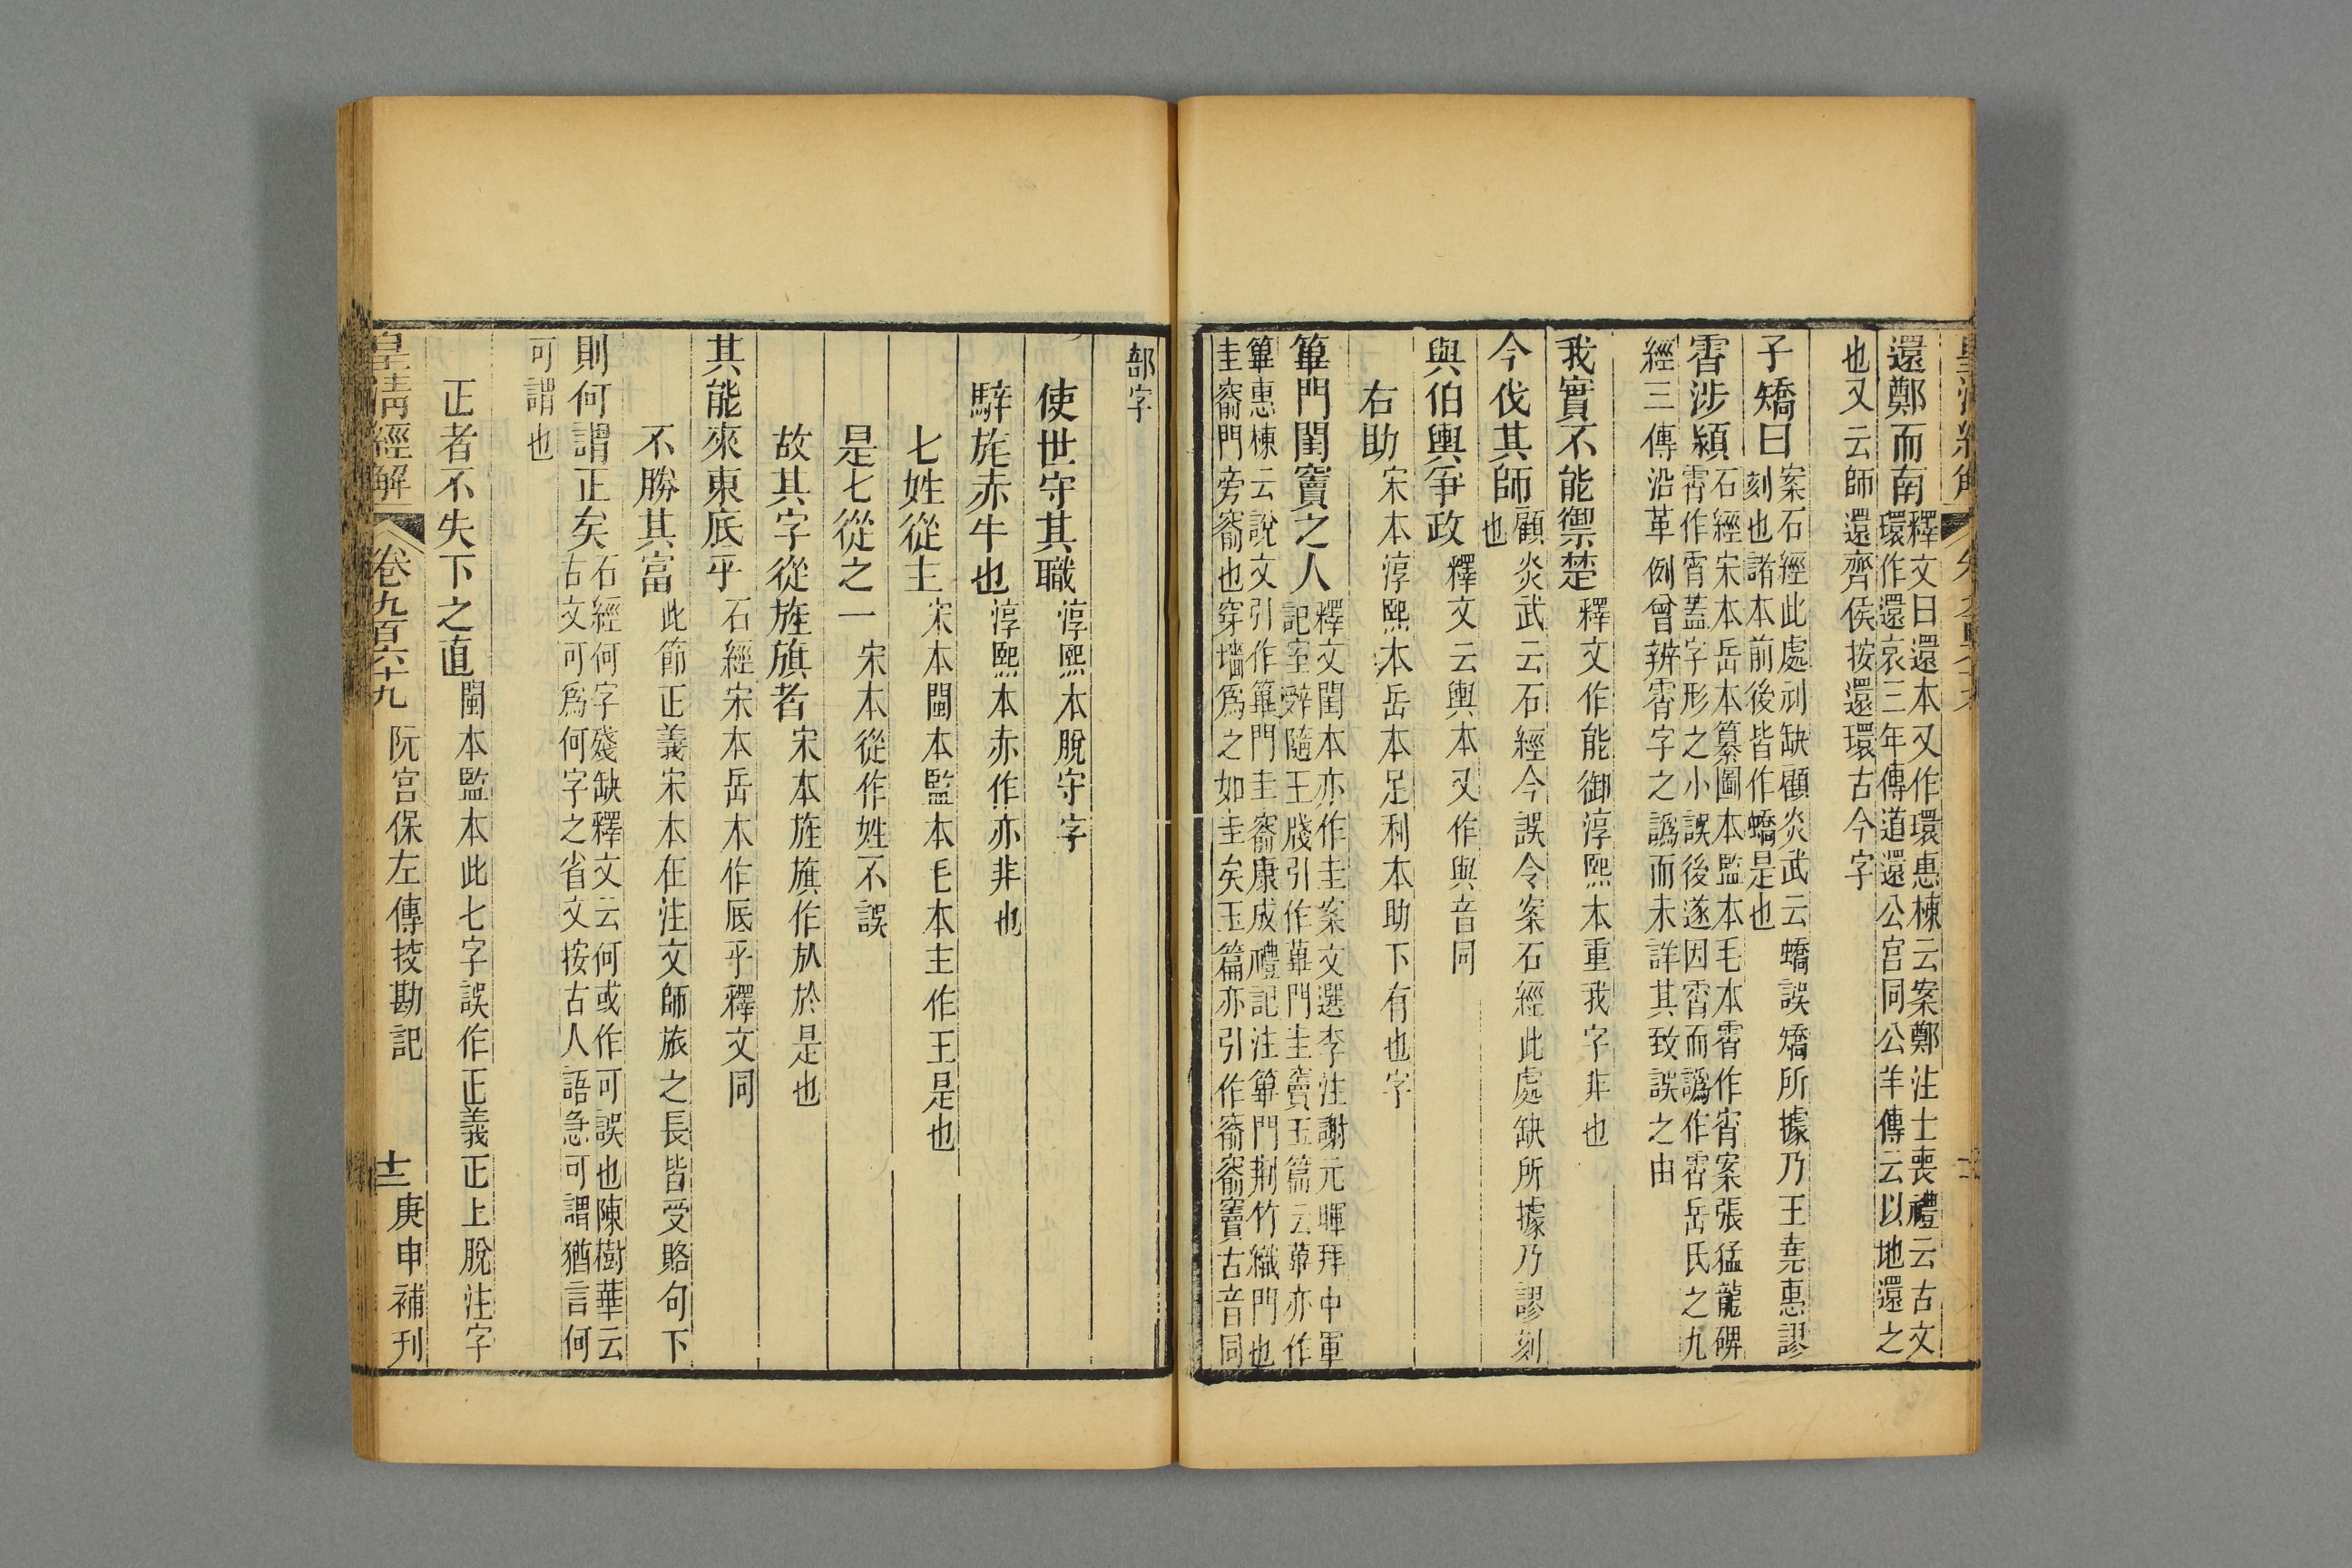 還鄭而南釋文曰還本又作環惠棟云案鄭注士喪禮云古文
環作還哀三年傳道還公宮同公羊傳云以地還之
也又云師還齊侯按還環古今字
子矯曰案石經此處刓缺顧炎武云蟜誤矯所據乃王堯惠謬
刻也諸本前後皆作蟜是也
霄涉潁石經宋本岳本纂圖本監本毛本霄作宵案張猛龍碑
霄作霄蓋字形之小誤後遂因霄而譌作霄岳氏之九
經三傳沿革例曾辨霄字之譌而未詳其致誤之由
我實不能禦楚釋文作能御淳熙本重我字非也
今伐其師顧炎武云石經今誤令案石經此處缺所據乃謬刻
也
與伯輿爭政釋文云輿本又作與音同
右助宋本淳熙本岳本足利本助下有也字
篳門閨竇之人釋文閨本亦作圭案文選李注謝元暉拜中軍
記室辤隨王牋引作蓽門圭竇玉篇云蓽亦作
篳惠棟云說文引作篳門圭窬康成禮記注篳門荆竹織門也
圭窬門旁窬也穿墻爲之如圭矣玉篇亦引作窬窬竇古音同
部字
使世守其職淳熙本脫守字
騂旄赤牛也淳熙本赤作亦非也
七姓從主宋本閩本監本毛本主作王是也
是七從之一宋本從作姓不誤
故其字從旌旗者宋本旌旗作㫃於是也
其能來東厎乎石經宋本岳本作底乎釋文同
不勝其富此節正義宋本在注文師旅之長皆受賂句下
則何謂正矣石經何字殘缺釋文云何或作可誤也陳樹華云
古文可爲何字之省文按古人語急可謂猶言何
可謂也
正者不失下之直閩本監本此七字誤作正義正上脫注字
皇淸經解 卷九百六十九 阮宮保左傳挍勘記 十二 庚申補刊